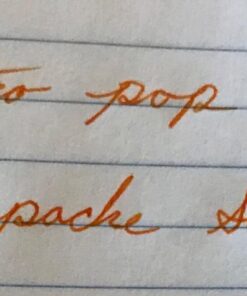 to pop
pache S